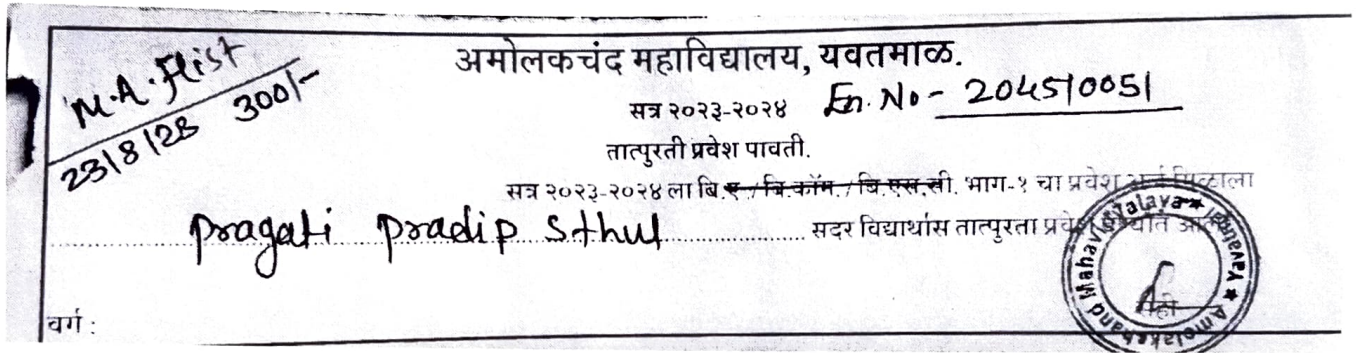 अमोलकचंद महाविद्यालय, यवतमाळ.
M.A. Hist
300/-
23/8/23
सत्र २०२३-२०२४ En. No - 204510051
तात्पुरती प्रवेश पावती.
सत्र २०२३-२०२४ ला बि.ए./बि.कॉम./बि.एस.सी. भाग-१ चा प्रवेश अर्ज मिळाला
Pragati Pradip Sthul सदर विद्यार्थास तात्पुरता प्रवेश देण्यात आला
Amolakchand Mahavidyalaya ★ Yavatmal ★
सही
वर्ग :